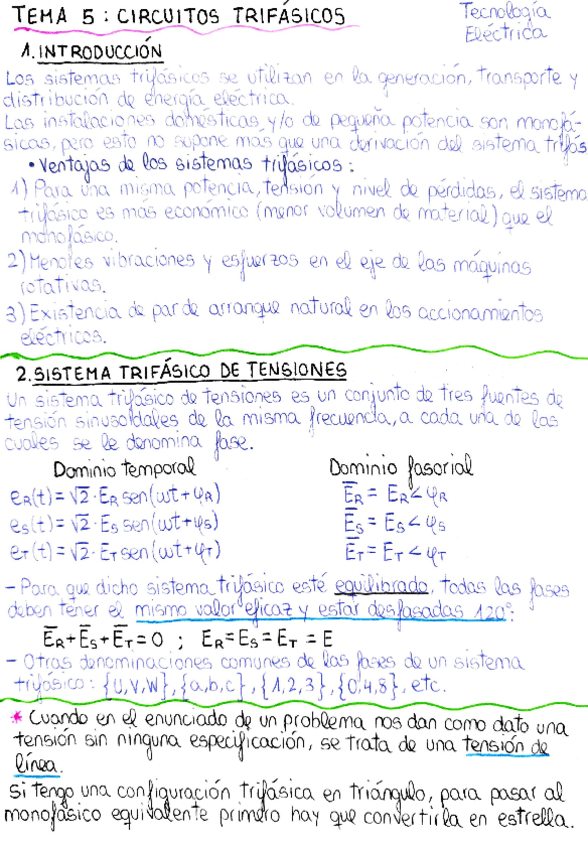 TEMA 5: CIRCUITOS TRIFÁSICOS
Tecnología
Eléctrica
1. INTRODUCCIÓN
Los sistemas trifásicos se utilizan en la generación, transporte y
distribución de energía eléctrica.
Las instalaciones domésticas y/o de pequeña potencia son monofá-
sicas, pero esto no supone más que una derivación del sistema trifás
• Ventajas de los sistemas trifásicos:
1) Para una misma potencia, tensión y nivel de pérdidas, el sistema
trifásico es más económico (menor volumen de material) que el
monofásico.
2) Menores vibraciones y esfuerzos en el eje de las máquinas
rotativas.
3) Existencia de par de arranque natural en los accionamientos
eléctricos.
2. SISTEMA TRIFÁSICO DE TENSIONES
Un sistema trifásico de tensiones es un conjunto de tres fuentes de
tensión sinusoidales de la misma frecuencia, a cada una de las
cuales se le denomina fase.
Dominio temporal
e_R(t) = √2 · E_R sen(ωt + φ_R)
e_S(t) = √2 · E_S sen(ωt + φ_S)
e_T(t) = √2 · E_T sen(ωt + φ_T)
Dominio fasorial
E̅_R = E_R∠φ_R
E̅_S = E_S∠φ_S
E̅_T = E_T∠φ_T
- Para que dicho sistema trifásico esté equilibrado, todas las fases
deben tener el mismo valor eficaz y estar desfasadas 120°:
E̅_R + E̅_S + E̅_T = 0 ; E_R = E_S = E_T = E
- Otras denominaciones comunes de las fases de un sistema
trifásico: {U,V,W}, {a,b,c}, {1,2,3}, {0,4,8}, etc.
* Cuando en el enunciado de un problema nos dan como dato una
tensión sin ninguna especificación, se trata de una tensión de
línea.
Si tengo una configuración trifásica en triángulo, para pasar al
monofásico equivalente primero hay que convertirla en estrella.